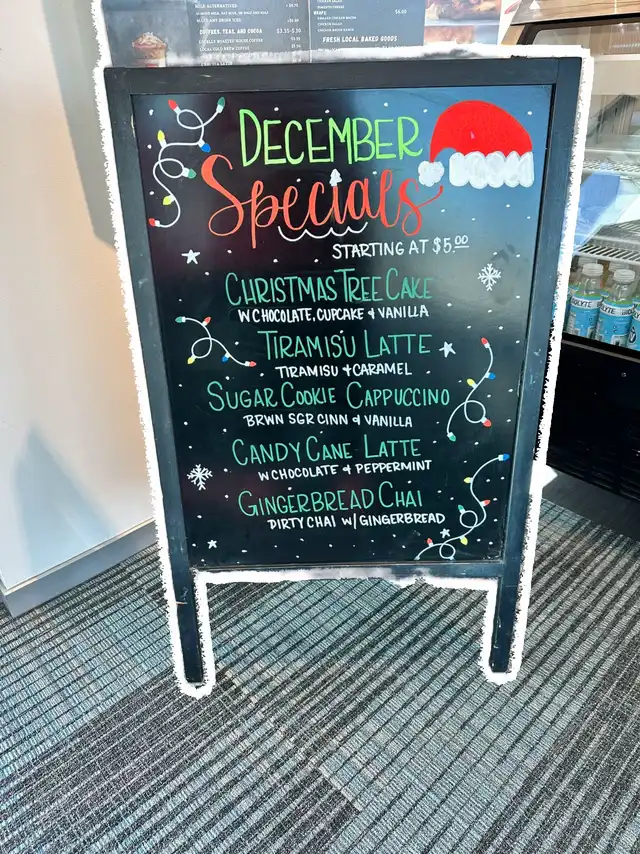 MILK ALTERNATIVES
COFFEES, TEAS, AND COCOA $3.25-5.50
WRAPS $6.00
FRESH LOCAL BAKED GOODS
DECEMBER
Specials
STARTING AT $5.00
CHRISTMAS TREE CAKE
W CHOCOLATE, CUPCAKE & VANILLA
TIRAMISU LATTE
TIRAMISU & CARAMEL
SUGAR COOKIE CAPPUCCINO
BRWN SGR CINN & VANILLA
CANDY CANE LATTE
W CHOCOLATE & PEPPERMINT
GINGERBREAD CHAI
DIRTY CHAI W/ GINGERBREAD